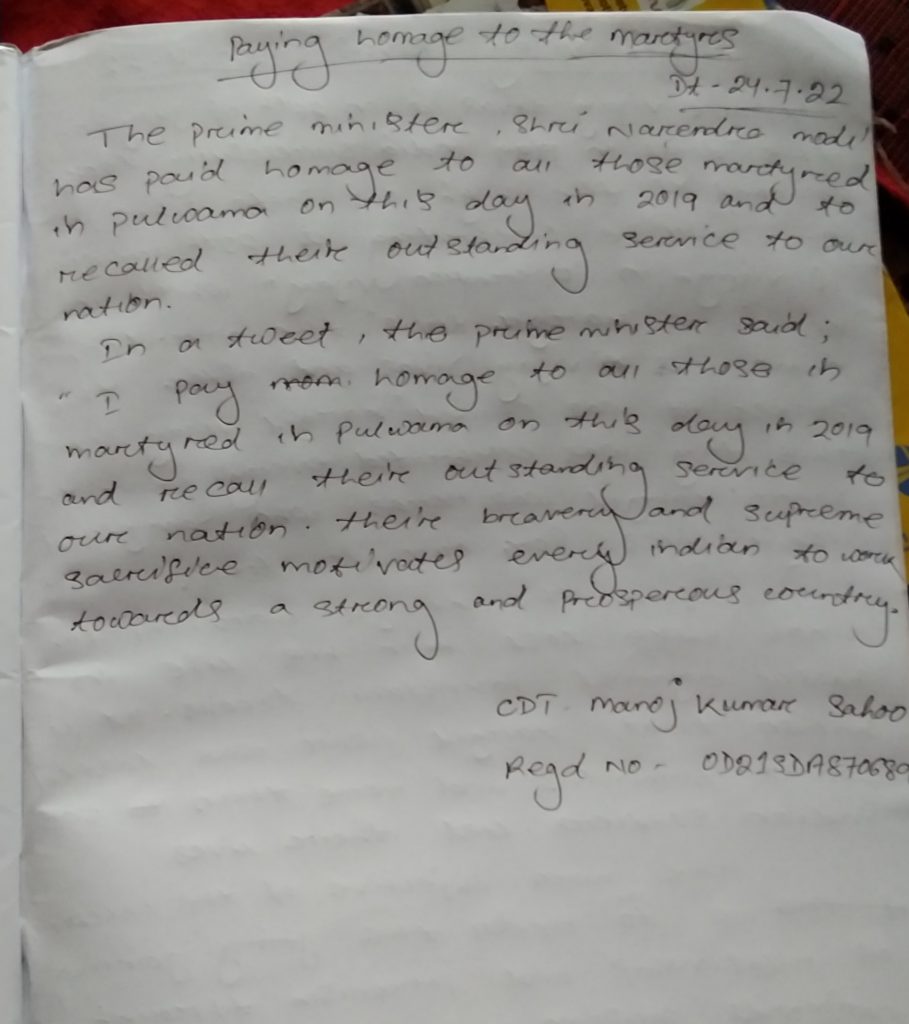 Paying homage to the marctyres
Dt - 24.7.22
The preime ministere, Shrei Narcendrea modi
has paid homage to all those marctyreed
in pulwama on this day in 2019 and to
recalled theire outstanding sercvice to oure
nation.
In a tweet, the preime minister said;
" I pay homage to all those in
marctyred in Pulwama on this day in 2019
and recall theire outstanding sercvice to
oure nation. theire breaverey and supreeme
sacreifice motivates everey indian to work
towareds a streong and preospereous countrey.
CDT Manoj Kumare Sahoo
Regd No - OD21SDA870680